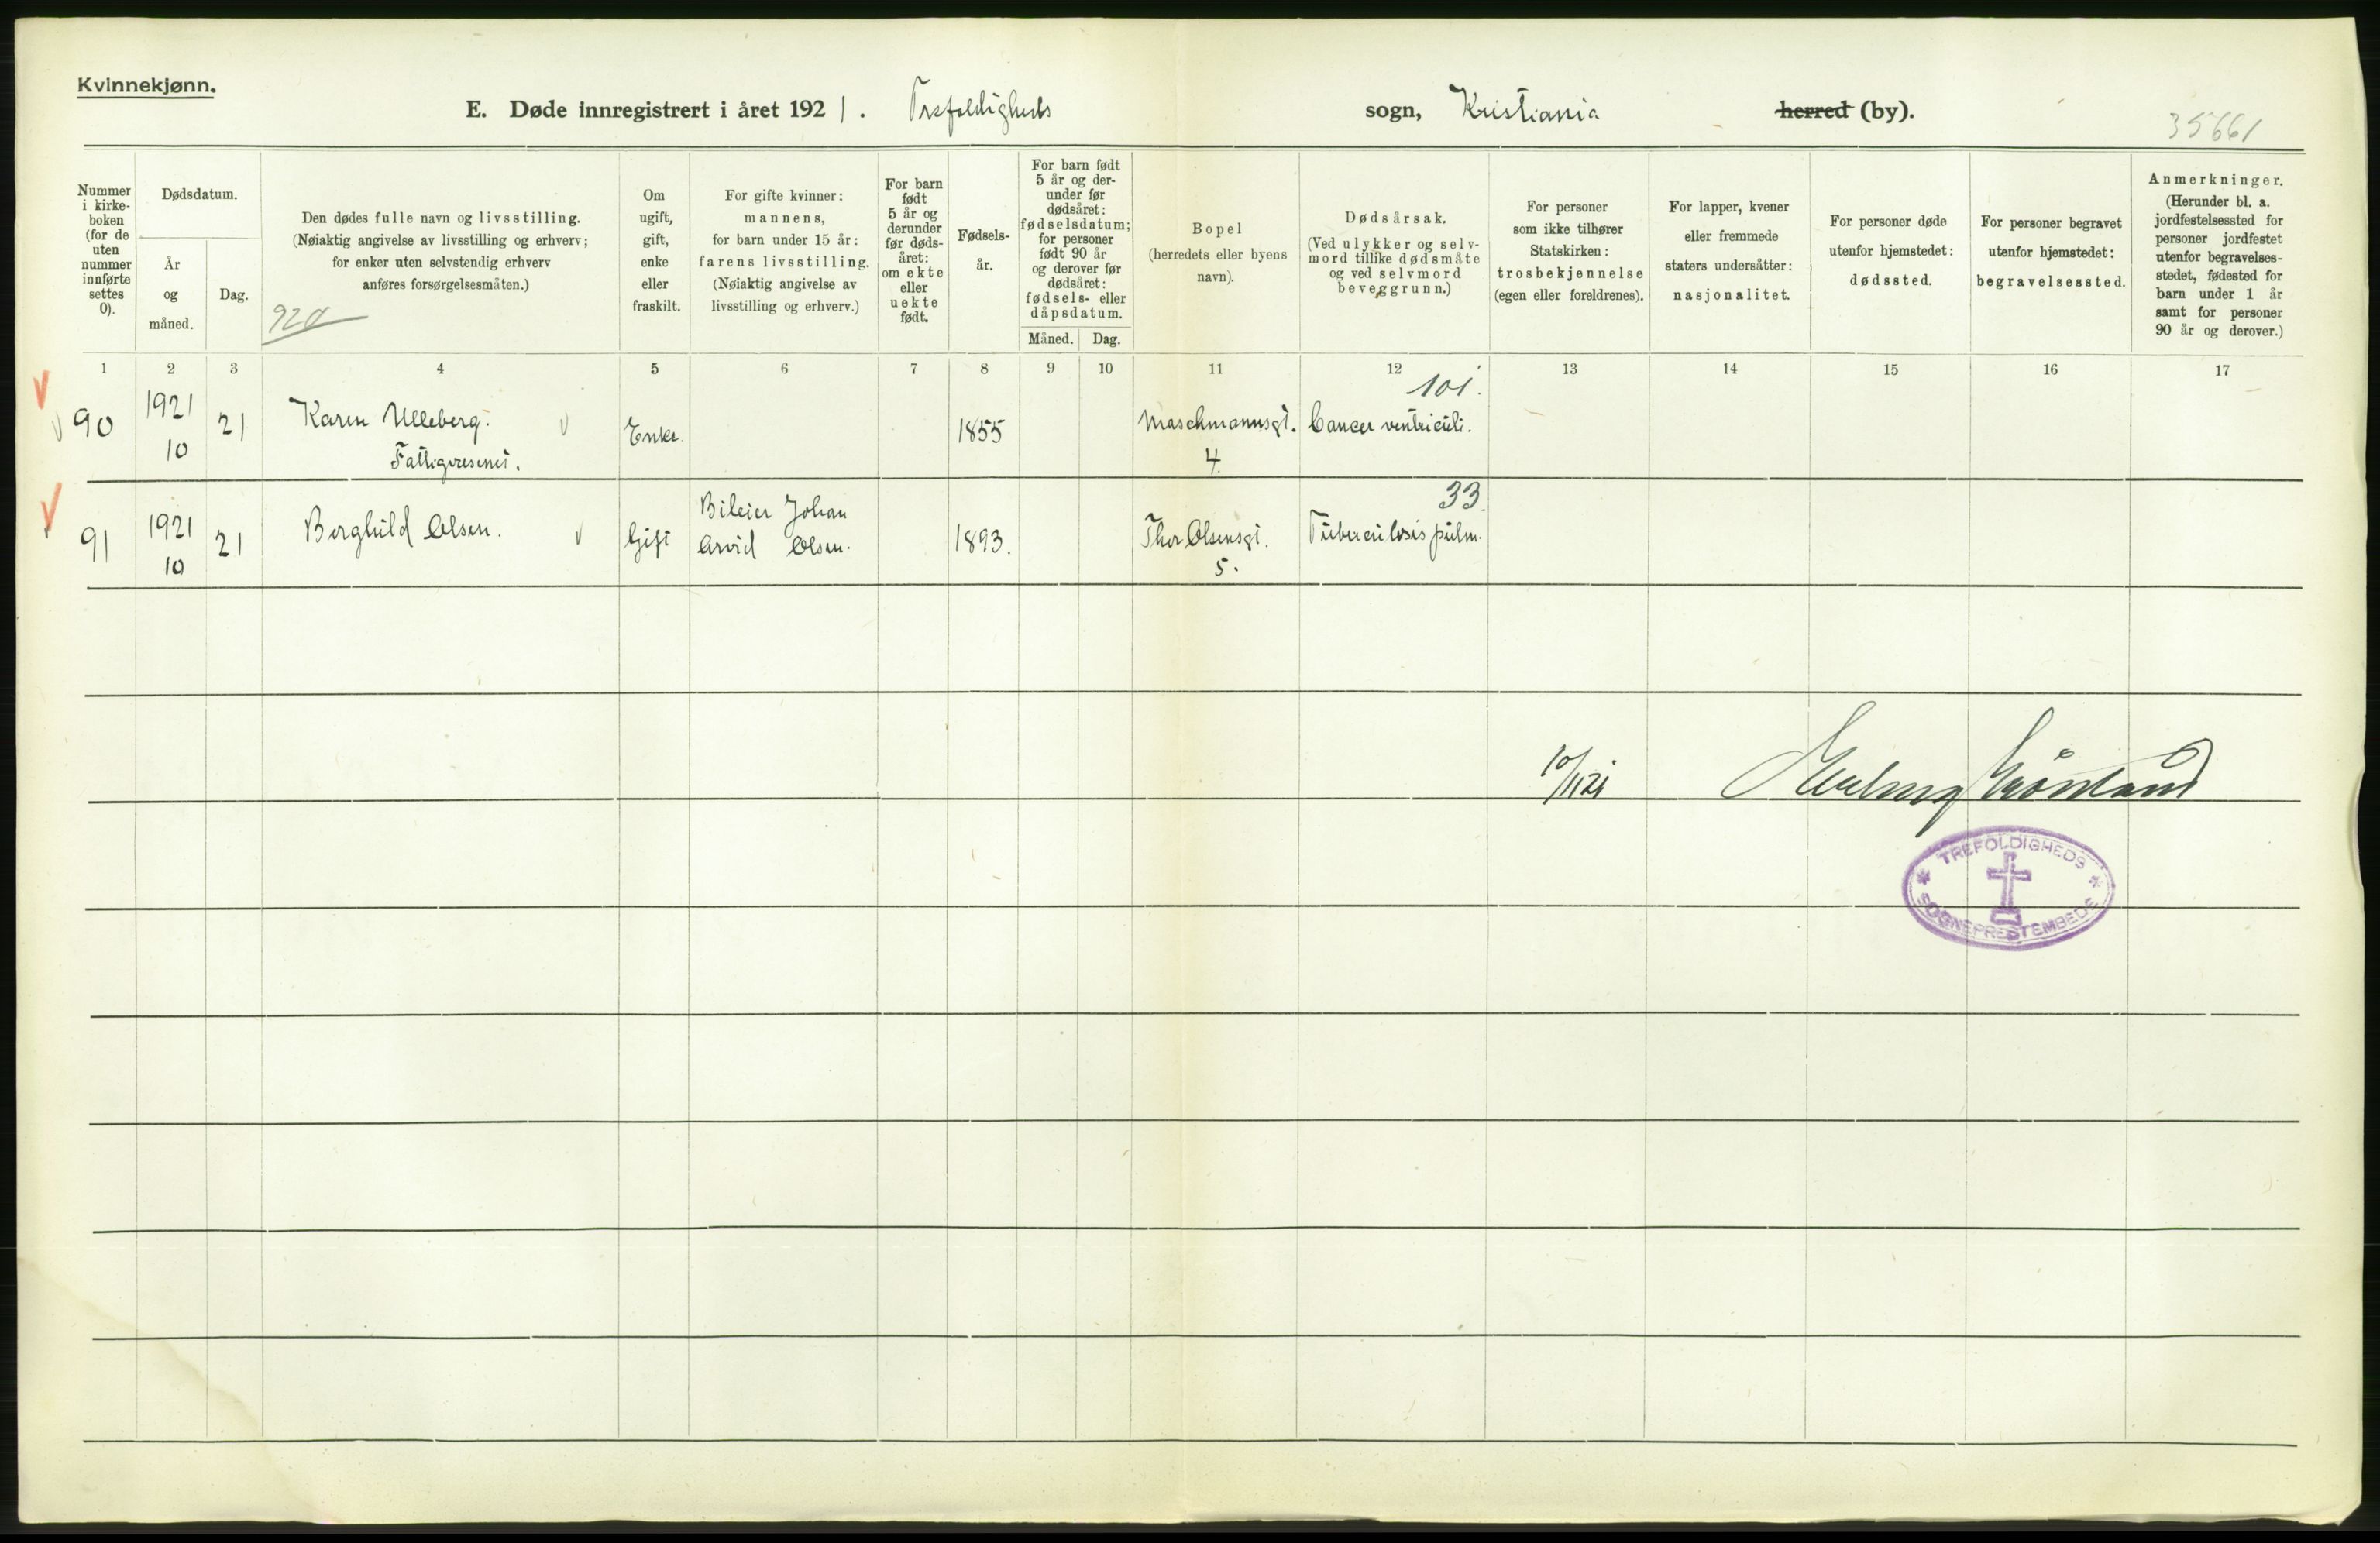 Kvinnekjønn.
E. Døde innregistrert i året 1921. Trefoldigheds sogn, Kristiania herred (by).
35661
Nummer i kirke-boken (for de uten nummer innførte settes 0).
Dødsdatum.
År og måned.
Dag.
Den dødes fulle navn og livsstilling.
(Nøiaktig angivelse av livsstilling og erhverv;
for enker uten selvstendig erhverv
anføres forsørgelsesmåten.)
920
Om
ugift,
gift,
enke
eller
fraskilt.
For gifte kvinner:
mannens,
for barn under 15 år:
farens livsstilling.
(Nøiaktig angivelse av
livsstilling og erhverv.)
For barn
født
5 år og
derunder
før døds-
året:
om ekte
eller
uekte
født.
Fødsels-
år.
For barn født
5 år og der-
under før
dødsåret:
fødselsdatum;
for personer
født 90 år
og derover før
dødsåret:
fødsels- eller
dåpsdatum.
Måned. Dag.
Bopel
(herredets eller byens
navn).
Dødsårsak.
(Ved ulykker og selv-
mord tillike dødsmåte
og ved selvmord
beveggrunn.)
For personer
som ikke tilhører
Statskirken:
trosbekjennelse
(egen eller foreldrenes).
For lapper, kvener
eller fremmede
staters undersåtter:
nasjonalitet.
For personer døde
utenfor hjemstedet:
dødssted.
For personer begravet
utenfor hjemstedet:
begravelsessted.
Anmerkninger.
(Herunder bl. a.
jordfestelsessted for
personer jordfestet
utenfor begravelses-
stedet, fødested for
barn under 1 år
samt for personer
90 år og derover.)
1 2 3 4 5 6 7 8 9 10 11 12 13 14 15 16 17
101.
90 1921 21 Karen Ulleberg. Enke 1855 Maschmannsgt. Cancer ventriculi.
10 Fattigvesenet. 4.
33.
Bileier Johan
91 1921 21 Borghild Olsen. Gift Arvid Olsen. 1893. Thor Olsensgt. Tuberculosis pulm.
10 5.
10/11 21
TREFOLDIGHEDS
SOGNEPRESTEMBEDE